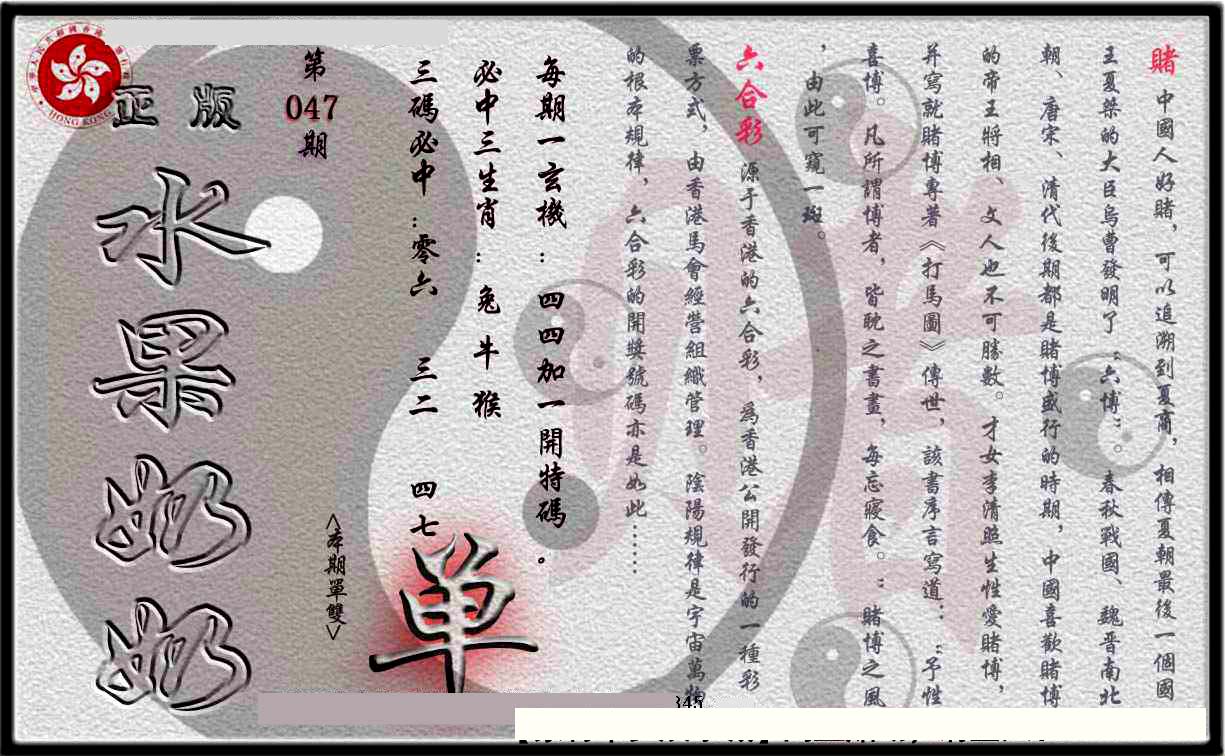 賭 中國人好賭，可以追溯到夏商，相傳夏朝最後一個國
王夏桀的大臣烏曹發明了“六博”。春秋戰國、魏晋南北
朝、唐宋、清代後期都是賭博盛行的時期，中國喜歡賭博
的帝王將相、文人也不可勝數。才女李清照生性愛賭博，
并寫就賭博專著《打馬圖》傳世，該書序言寫道：“予性
喜博。凡所謂博者，皆耽之書畫，每忘寢食。”賭博之風
，由此可窺一斑。
六合彩 源于香港的六合彩，爲香港公開發行的一種彩
票方式，由香港馬會經營組織管理。陰陽規律是宇宙萬物
的根本規律，六合彩的開獎號碼亦是如此……
每期一玄機：四四加一開特碼。
必中三生肖：兔 牛 猴
三碼必中：零六 三二 四七
單
<本期單雙>
第
047
期
正版
水果奶奶
HONG KONG
345